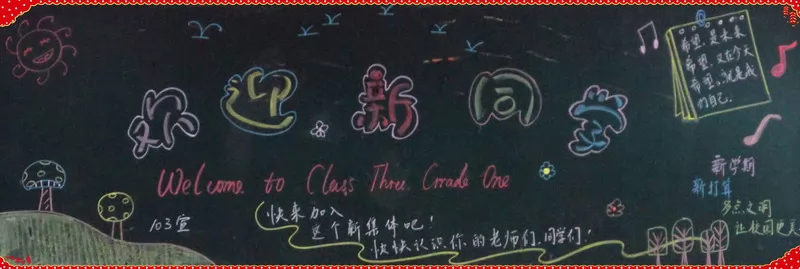 欢迎新同学
希望，是未来
希望，又在今天
希望，就是我
们自己.
Welcome to Class Three Grade One
新学期
新打算
多点文明
让校园更美
103宣
快来加入
这个新集体吧！
快快认识你的老师们、同学们！